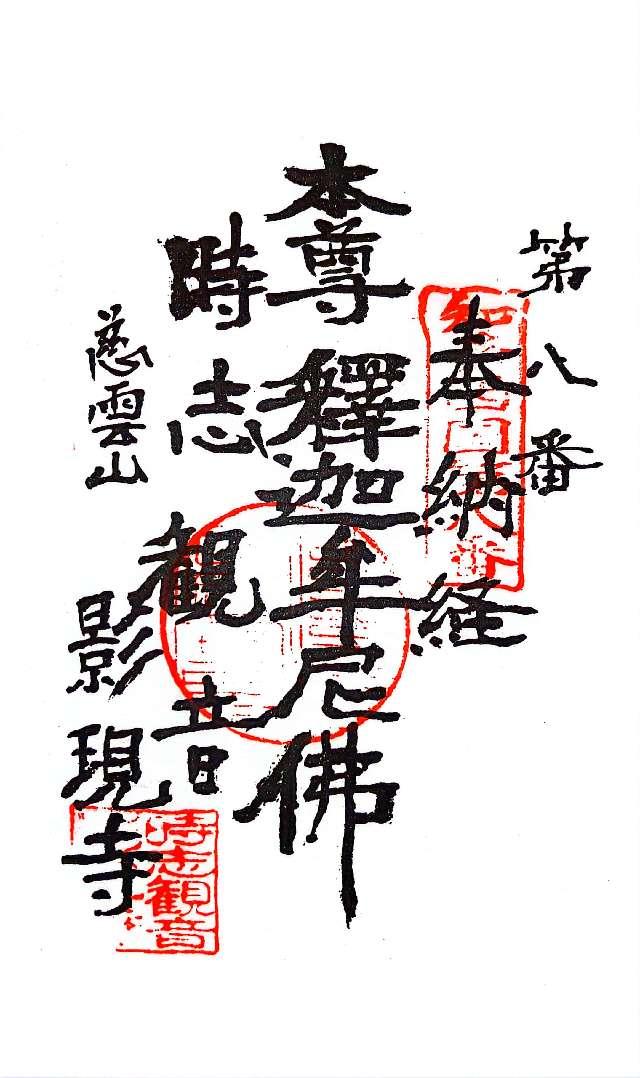 第八番
奉納経
本尊 釋迦牟尼佛
時志観音
慈雲山
影現寺
時志観音